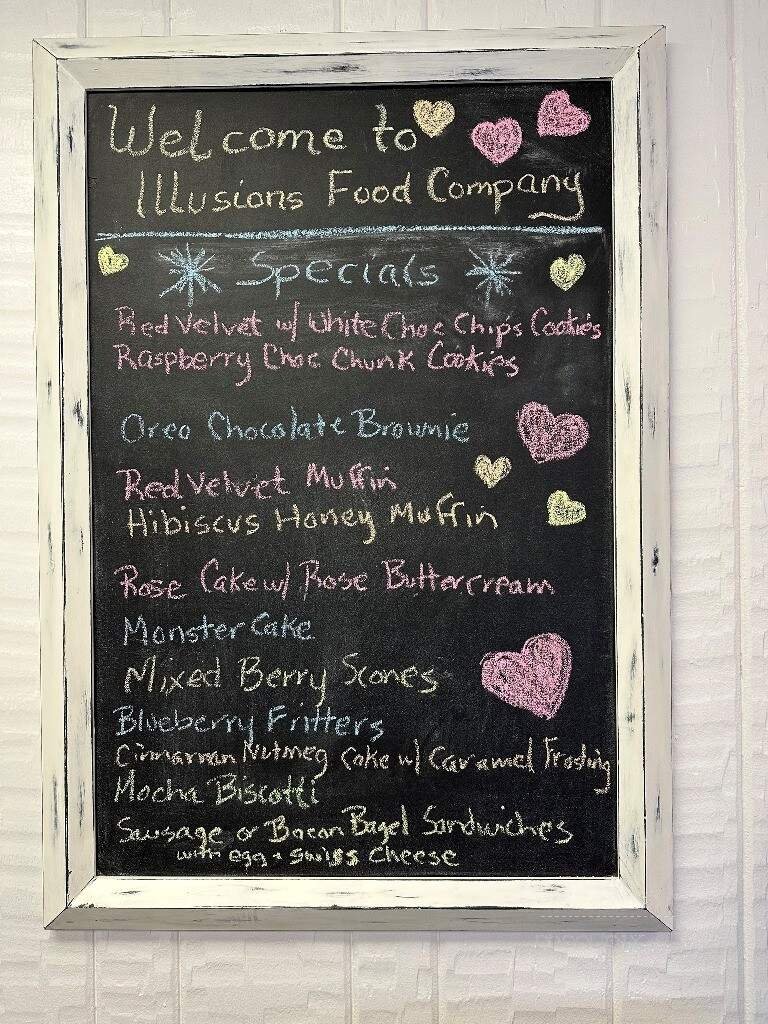 Welcome to
Illusions Food Company
Specials
Red Velvet w/ White Choc Chips Cookies
Raspberry Choc Chunk Cookies
Oreo Chocolate Brownie
Red Velvet Muffin
Hibiscus Honey Muffin
Rose Cake w/ Rose Buttercream
Monster Cake
Mixed Berry Scones
Blueberry Fritters
Cinnamon Nutmeg Cake w/ Caramel Frosting
Mocha Biscotti
Sausage or Bacon Bagel Sandwiches
with egg + Swiss Cheese